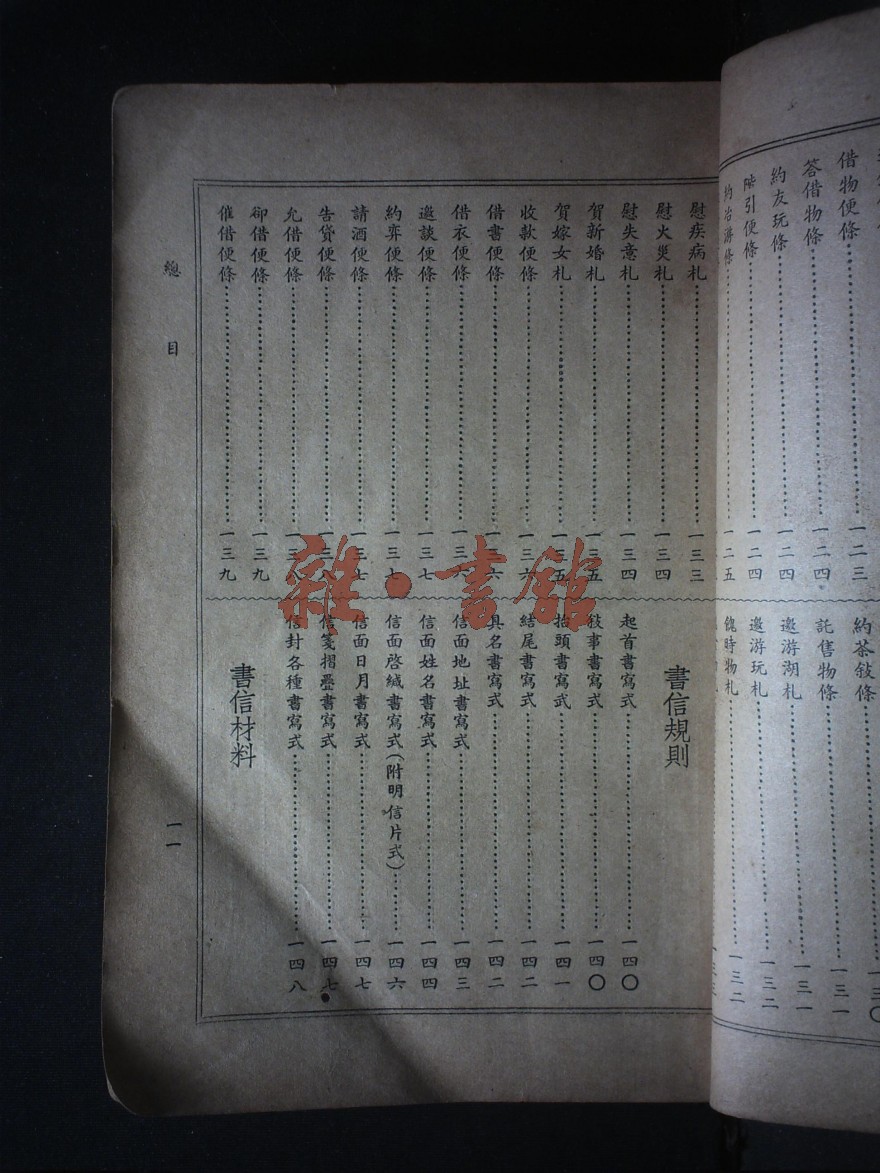 借物便條……一二三
答借物條……一二四
約友玩條……一二四
引便條……一二四
約冶游條……一二五
約茶敍條……一三〇
託售物條……一三一
邀游湖札……一三一
邀游玩札……一三二
餽時物札……一三二
慰疾病札……一三三
慰火災札……一三四
慰失意札……一三四
賀新婚札……一三五
賀嫁女札……一三五
收款便條……一三六
借書便條……一三六
借衣便條……一三六
邀談便條……一三七
約弈便條……一三七
請酒便條……一三七
告貸便條……一三八
允借便條……一三八
卻借便條……一三九
催借便條……一三九
書信規則
起首書寫式……一四〇
敍事書寫式……一四〇
抬頭書寫式……一四一
結尾書寫式……一四二
具名書寫式……一四二
信面地址書寫式……一四三
信面姓名書寫式……一四四
信面啓緘書寫式(附明信片式)……一四六
信面日月書寫式……一四七
信箋摺疊書寫式……一四七
信封各種書寫式……一四八
書信材料
總目
一一
雜·書舘